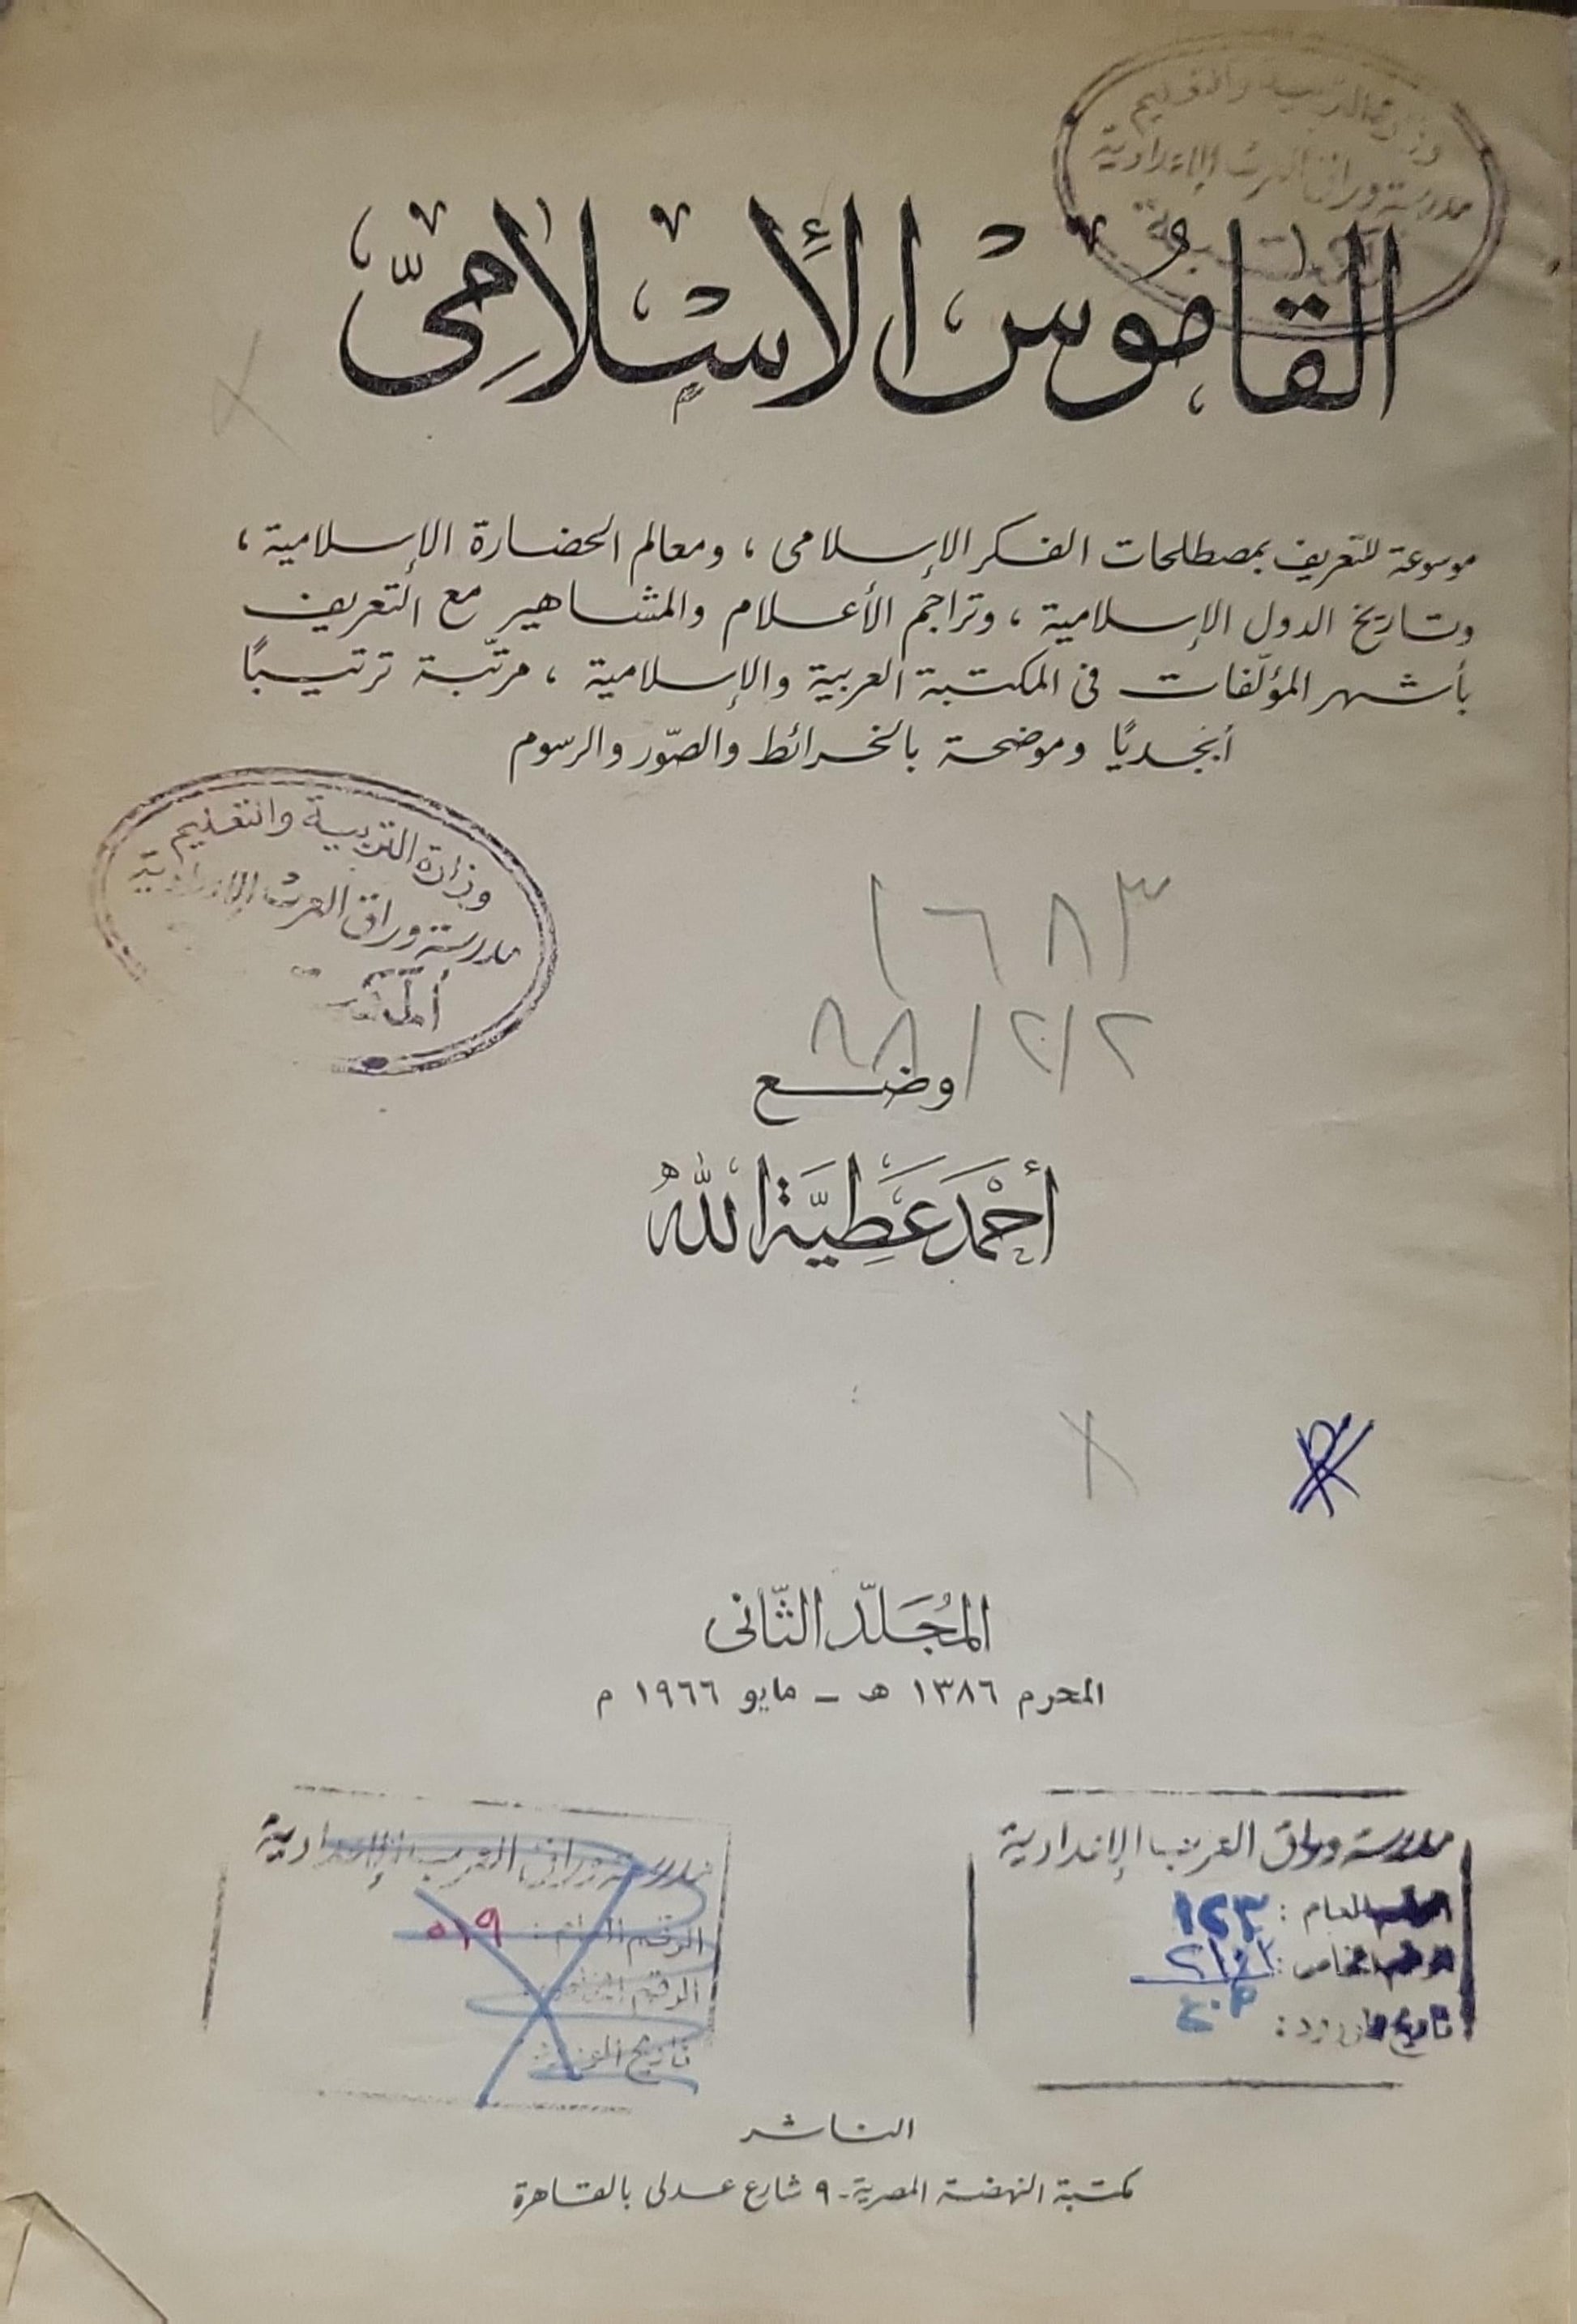 وزارة التربية والتعليم
مدرسة وراق العرب الإعدادية
القاموس الإسلامي
موسوعة للتعريف بمصطلحات الفكر الإسلامى ، ومعالم الحضارة الإسلامية ،
وتاريخ الدول الإسلامية ، وتراجم الأعلام والمشاهير مع التعريف
بأشهر المؤلّفات فى المكتبة العربية والإسلامية ، مرتّبة ترتيبًا
أبجديًا وموضحة بالخرائط والصّور والرسوم
وزارة التربية والتعليم
مدرسة وراق العرب الإعدادية
١٦٨٣
٢/٢/٨٨
وضع
أحْمَد عَطِيَّة اللهُ
المُجَلّد الثّانى
المحرم ١٣٨٦ هـ – مايو ١٩٦٦ م
مدرسة وراق العرب الإعدادية
العام : ١٢٣
الخاص :
تاريخ
مدرسة وراق العرب الإعدادية
الرقم العام : ٥١٩
الرقم الخاص
تاريخ
الناشر
مكتبة النهضة المصرية - ٩ شارع عدلى بالقاهرة